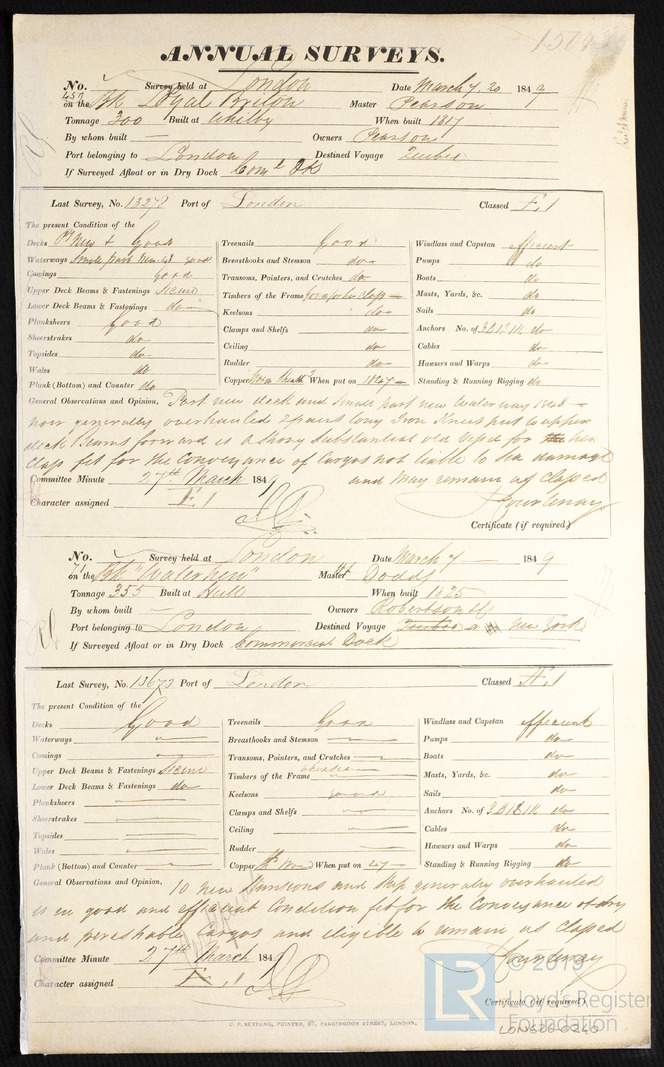 ANNUAL SURVEYS.
No. 457 Survey held at London Date March 7. 20 1849
on the Bk Loyal Briton Master Pearson
Tonnage 300 Built at Whitby When built 1817
By whom built — Owners Pearson
Port belonging to London Destined Voyage Quebec
If Surveyed Afloat or in Dry Dock Coml Dk
Last Survey, No. 13278 Port of London Classed Æ.1
The present Condition of the
Decks Pt New & Good
Waterways Small part New 48 good
Comings good
Upper Deck Beams & Fastenings Seem
Lower Deck Beams & Fastenings do
Planksheers Good
Sheerstrakes do
Topsides do
Wales do
Plank (Bottom) and Counter do
Treenails Good
Breasthooks and Stemson do
Transoms, Pointers, and Crutches do
Timbers of the Frame for a ship class
Keelsons do
Clamps and Shelfs do
Ceiling do
Rudder do
Copper When put on 1847
Windlass and Capstan efficient
Pumps do
Boats do
Masts, Yards, &c. do
Sails do
Anchors No. of 3B1S1K do
Cables do
Hawsers and Warps do
Standing & Running Rigging do
General Observations and Opinion, Part new deck and small part new Waterway 1848 —
now generally overhauled 2 pairs long Iron Knees put to upper
deck Beams forward is a strong substantial old vessel for her
class fit for the Conveyance of Cargos not liable to Sea damage
and may remain as classed
Committee Minute 27th March 1849
Character assigned Æ.1
Courtenay
Certificate (if required)
No. 71 Survey held at London Date March 7 1849
on the Bk "Waterhen" Master Dodds
Tonnage 355 Built at Hull When built 1825
By whom built — Owners Robertson &c
Port belonging to London Destined Voyage Quebec New York
If Surveyed Afloat or in Dry Dock Commercial Dock
Last Survey, No. 13673 Port of London Classed Æ.1
The present Condition of the
Decks Good
Waterways —
Comings —
Upper Deck Beams & Fastenings Seem
Lower Deck Beams & Fastenings do
Planksheers —
Sheerstrakes —
Topsides —
Wales —
Plank (Bottom) and Counter —
Treenails Good
Breasthooks and Stemson —
Transoms, Pointers, and Crutches —
Timbers of the Frame
Keelsons good
Clamps and Shelfs —
Ceiling —
Rudder —
Copper When put on 47
Windlass and Capstan efficient
Pumps do
Boats do
Masts, Yards, &c. do
Sails do
Anchors No. of 3B1S1K do
Cables do
Hawsers and Warps do
Standing & Running Rigging do
General Observations and Opinion, 10 new Stunsions and ship generally overhauled
is in good and efficient Condition fit for the Conveyance of dry
and perishable Cargos and eligible to remain as Classed
Committee Minute 27th March 1849
Character assigned Æ.1
Courtenay
Certificate (if required)
C. F. SEYFANG, PRINTER, 57, FARRINGDON STREET, LONDON.
LR © 2019
Lloyd's Register
Foundation
LON626-0240